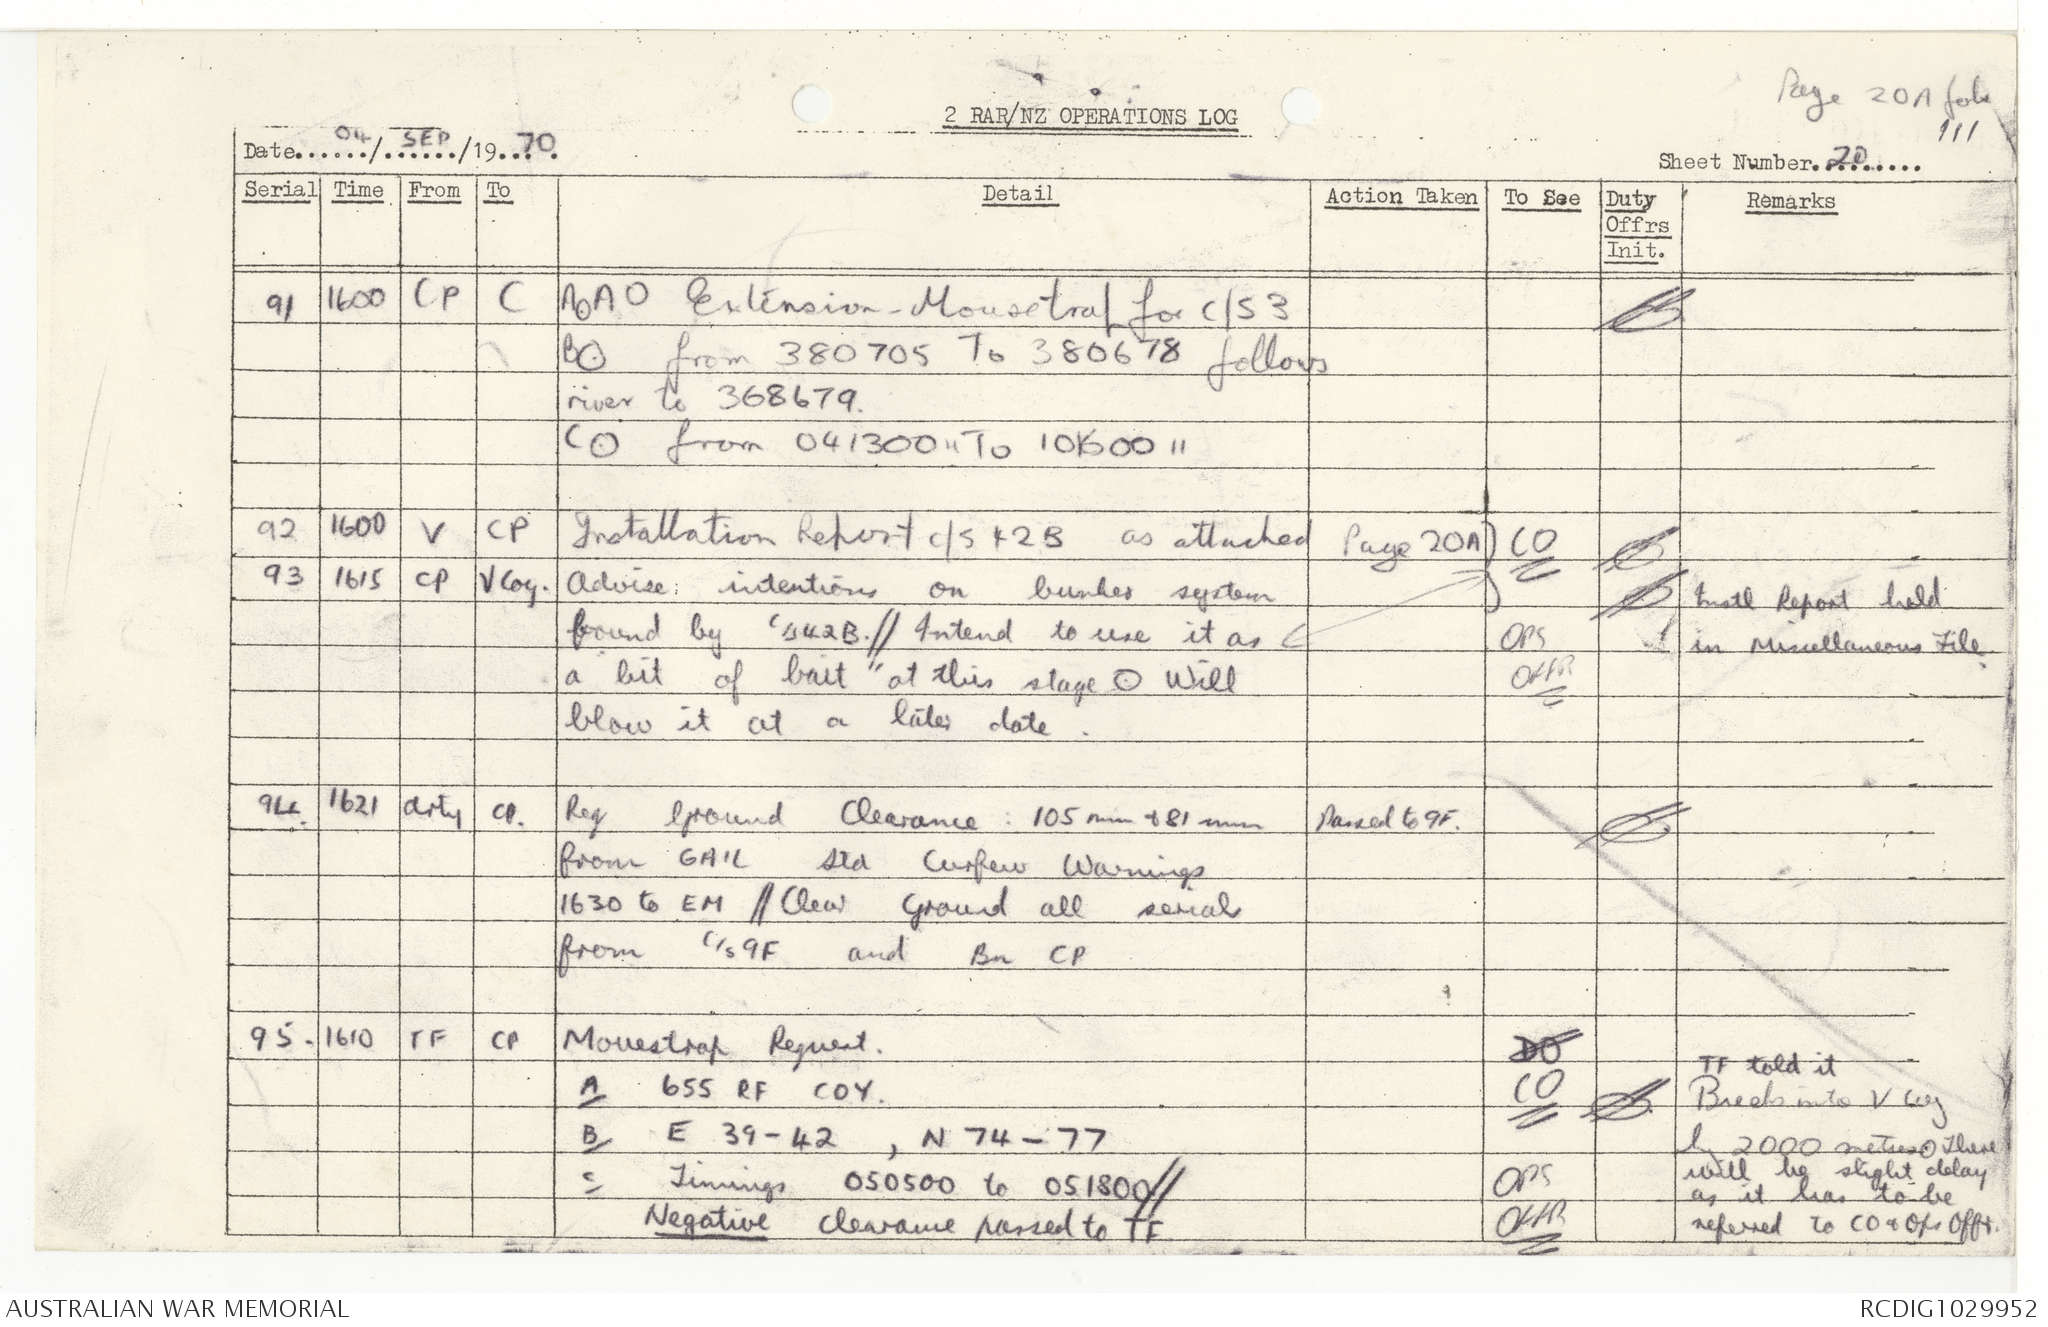 Page 20A fols
111
2 RAR/NZ OPERATIONS LOG
Date 04/SEP/1970.
Sheet Number 20
Serial Time From To Detail Action Taken To See Duty Offrs Init. Remarks
91 1600 CP C A⊙ AO Extension - Mousetrap for C/S 3
B⊙ from 380705 To 380678 follows
river to 368679.
C⊙ from 041300" To 101600 "
92 1600 V CP Installation Report c/s 42B as attached Page 20A CO
93 1615 CP V Coy. Advise: intentions on bunker system
found by c/s 42B. // Intend to use it as OPS
a bit of bait" at this stage ⊙ Will OFFR
blow it at a later date.
Instl Report held
in Miscellaneous File
94. 1621 Arty CP. Req Ground Clearance: 105 mm + 81 mm Passed to 9F.
from GAIL Std Curfew Warnings
1630 to EM // Clear Ground all serials
from c/s 9F and Bn CP
95. 1610 TF CP Mouestrap Request. DO
A 655 RF COY. CO
B E 39-42, N 74-77
C Timings 050500 to 051800 // OPS
Negative clearance passed to TF OFFR
TF told it
Breaks into V Coy
by 2000 metres ⊙ There
will be slight delay
as it has to be
referred to CO & Ops Offr.
AUSTRALIAN WAR MEMORIAL
RCDIG1029952